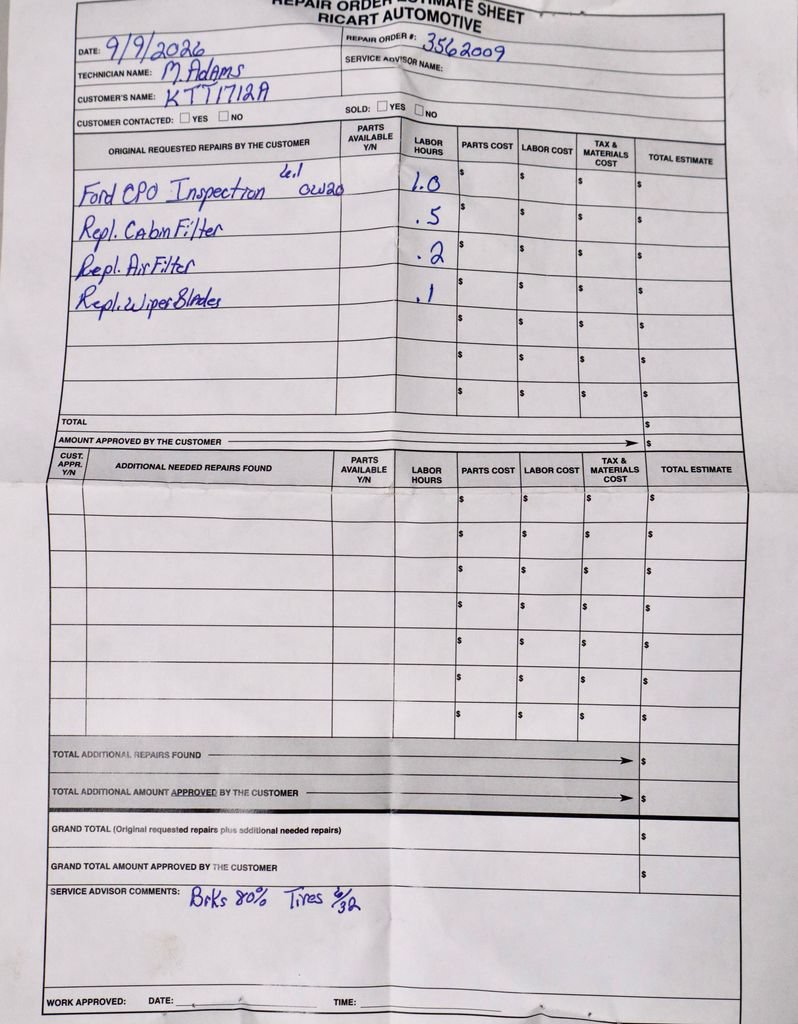 REPAIR ORDER ESTIMATE SHEET
RICART AUTOMOTIVE
DATE: 9/9/2026
REPAIR ORDER #: 3562009
TECHNICIAN NAME: M. Adams
SERVICE ADVISOR NAME:
CUSTOMER'S NAME: KTT1712A
CUSTOMER CONTACTED: YES NO
SOLD: YES NO
ORIGINAL REQUESTED REPAIRS BY THE CUSTOMER PARTS AVAILABLE Y/N LABOR HOURS PARTS COST LABOR COST TAX & MATERIALS COST TOTAL ESTIMATE
Ford CPO Inspection 6.1 0W20 1.0 $ $ $ $
Repl. Cabin Filter .5 $ $ $ $
Repl. Air Filter .2 $ $ $ $
Repl. Wiper Blades .1 $ $ $ $
$ $ $ $
$ $ $ $
$ $ $ $
TOTAL $
AMOUNT APPROVED BY THE CUSTOMER $
CUST. APPR. Y/N ADDITIONAL NEEDED REPAIRS FOUND PARTS AVAILABLE Y/N LABOR HOURS PARTS COST LABOR COST TAX & MATERIALS COST TOTAL ESTIMATE
$ $ $ $
$ $ $ $
$ $ $ $
$ $ $ $
$ $ $ $
$ $ $ $
$ $ $ $
TOTAL ADDITIONAL REPAIRS FOUND $
TOTAL ADDITIONAL AMOUNT APPROVED BY THE CUSTOMER $
GRAND TOTAL (Original requested repairs plus additional needed repairs) $
GRAND TOTAL AMOUNT APPROVED BY THE CUSTOMER $
SERVICE ADVISOR COMMENTS: Brks 80% Tires 6/32
WORK APPROVED: DATE: TIME: